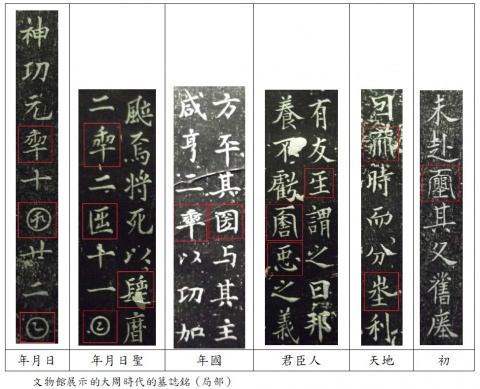 神功元𠡦十囝廿二𡆠
颷焉將死以𨲢曆
二𠡦二𠥱十一𡆠
方平其圀与其主
咸亨二𠡦以功加
有友𤯔謂之曰邦
養不虧𠺞𢘑之義
囙𠀑時而分埊利
未赴𡔈其父舊塋
年月日
年月日聖
年國
君臣人
天地
初
文物館展示的大周時代的墓誌銘（局部）